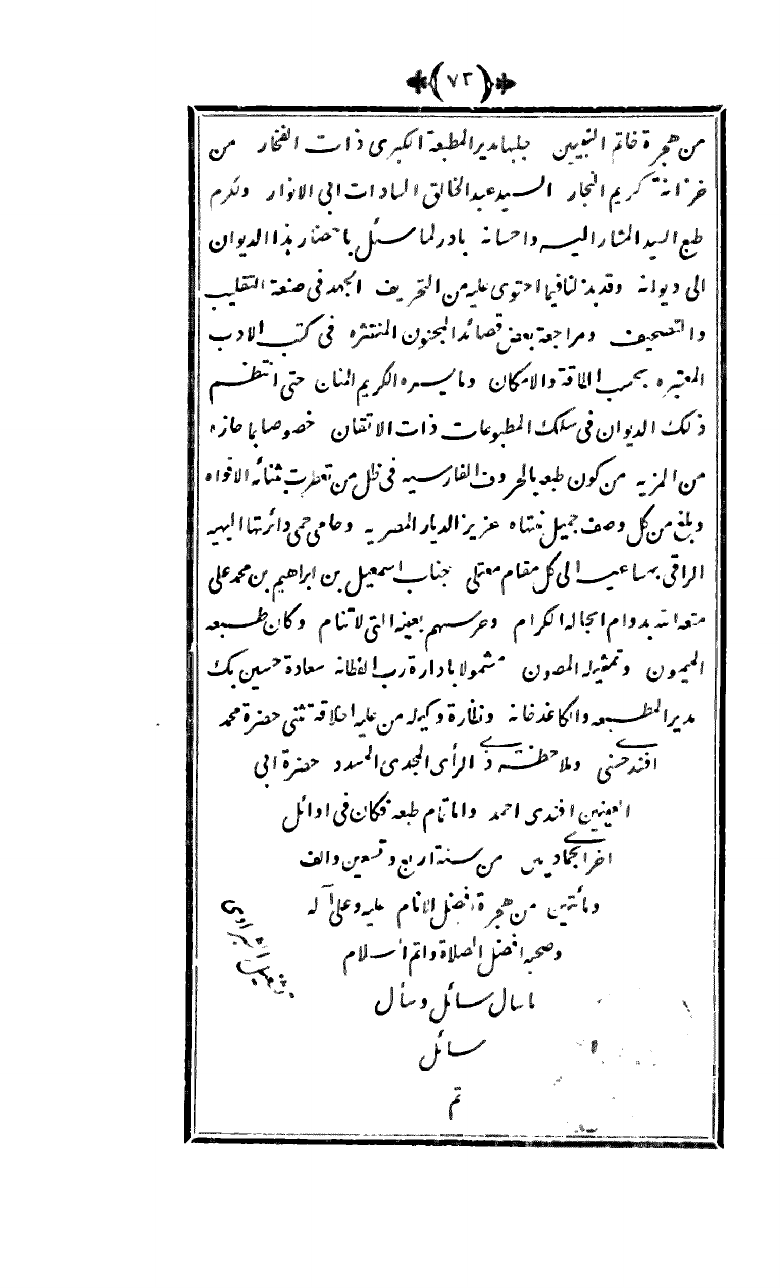 (٧٣)
من هجرة خاتم النبيين جلبها مدير المطبعة الكبرى ذات الفخار من
خزانة كريم النجار السيد عبد الخالق السادات ابى الانوار ولكرم
طبع السيد المشار اليه واحسانه بادر لما سئل باحضار هذا الديوان
الى ديوانه وقد بذلنا فيما احتوى عليه من التحريف الجهد فى صنعة التقليب
والتصحيف ومراجعة بعض قصائد المجنون المنتثره فى كتب الادب
المعتبره بحسب الطاقة والامكان وما يسره الكريم المنان حتى انتظم
ذلك الديوان فى سلك المطبوعات ذات الاتقان خصوصا بما حازه
من المزيه من كون طبعه بالحروف الفارسيه فى ظل من تعطرت بثنائه الافواه
وبلغ من كل وصف جميل منتهاه عزيز الديار المصريه وحامى حمى دائرتها البهيه
الراقى بمساعيه الى كل مقام معتلى جناب اسمعيل بن ابراهيم بن محمد على
متعه الله بدوام انجاله الكرام وحرسهم بعينه التى لا تنام وكان طبعه
الميمون وتمثيله المصون مشمولا بادارة رب الفطانه سعادة حسين بك
مدير المطبعه والكاغدخانه ونظارة وكيله من عليه اخلاقه تثنى حضرة محمد
افندى حسنى وملاحظة ذى الرأى المجدى المسدد حضرة ابى
العينين افندى احمد واما تمام طبعه فكان فى اوائل
اخرى الجمادين من سنة اربع وتسعين والف
ومائتين من هجرة افضل الانام عليه وعلى آله
وصحبه افضل الصلاة واتم السلام
ما سال سائل وسأل
سائل
تم